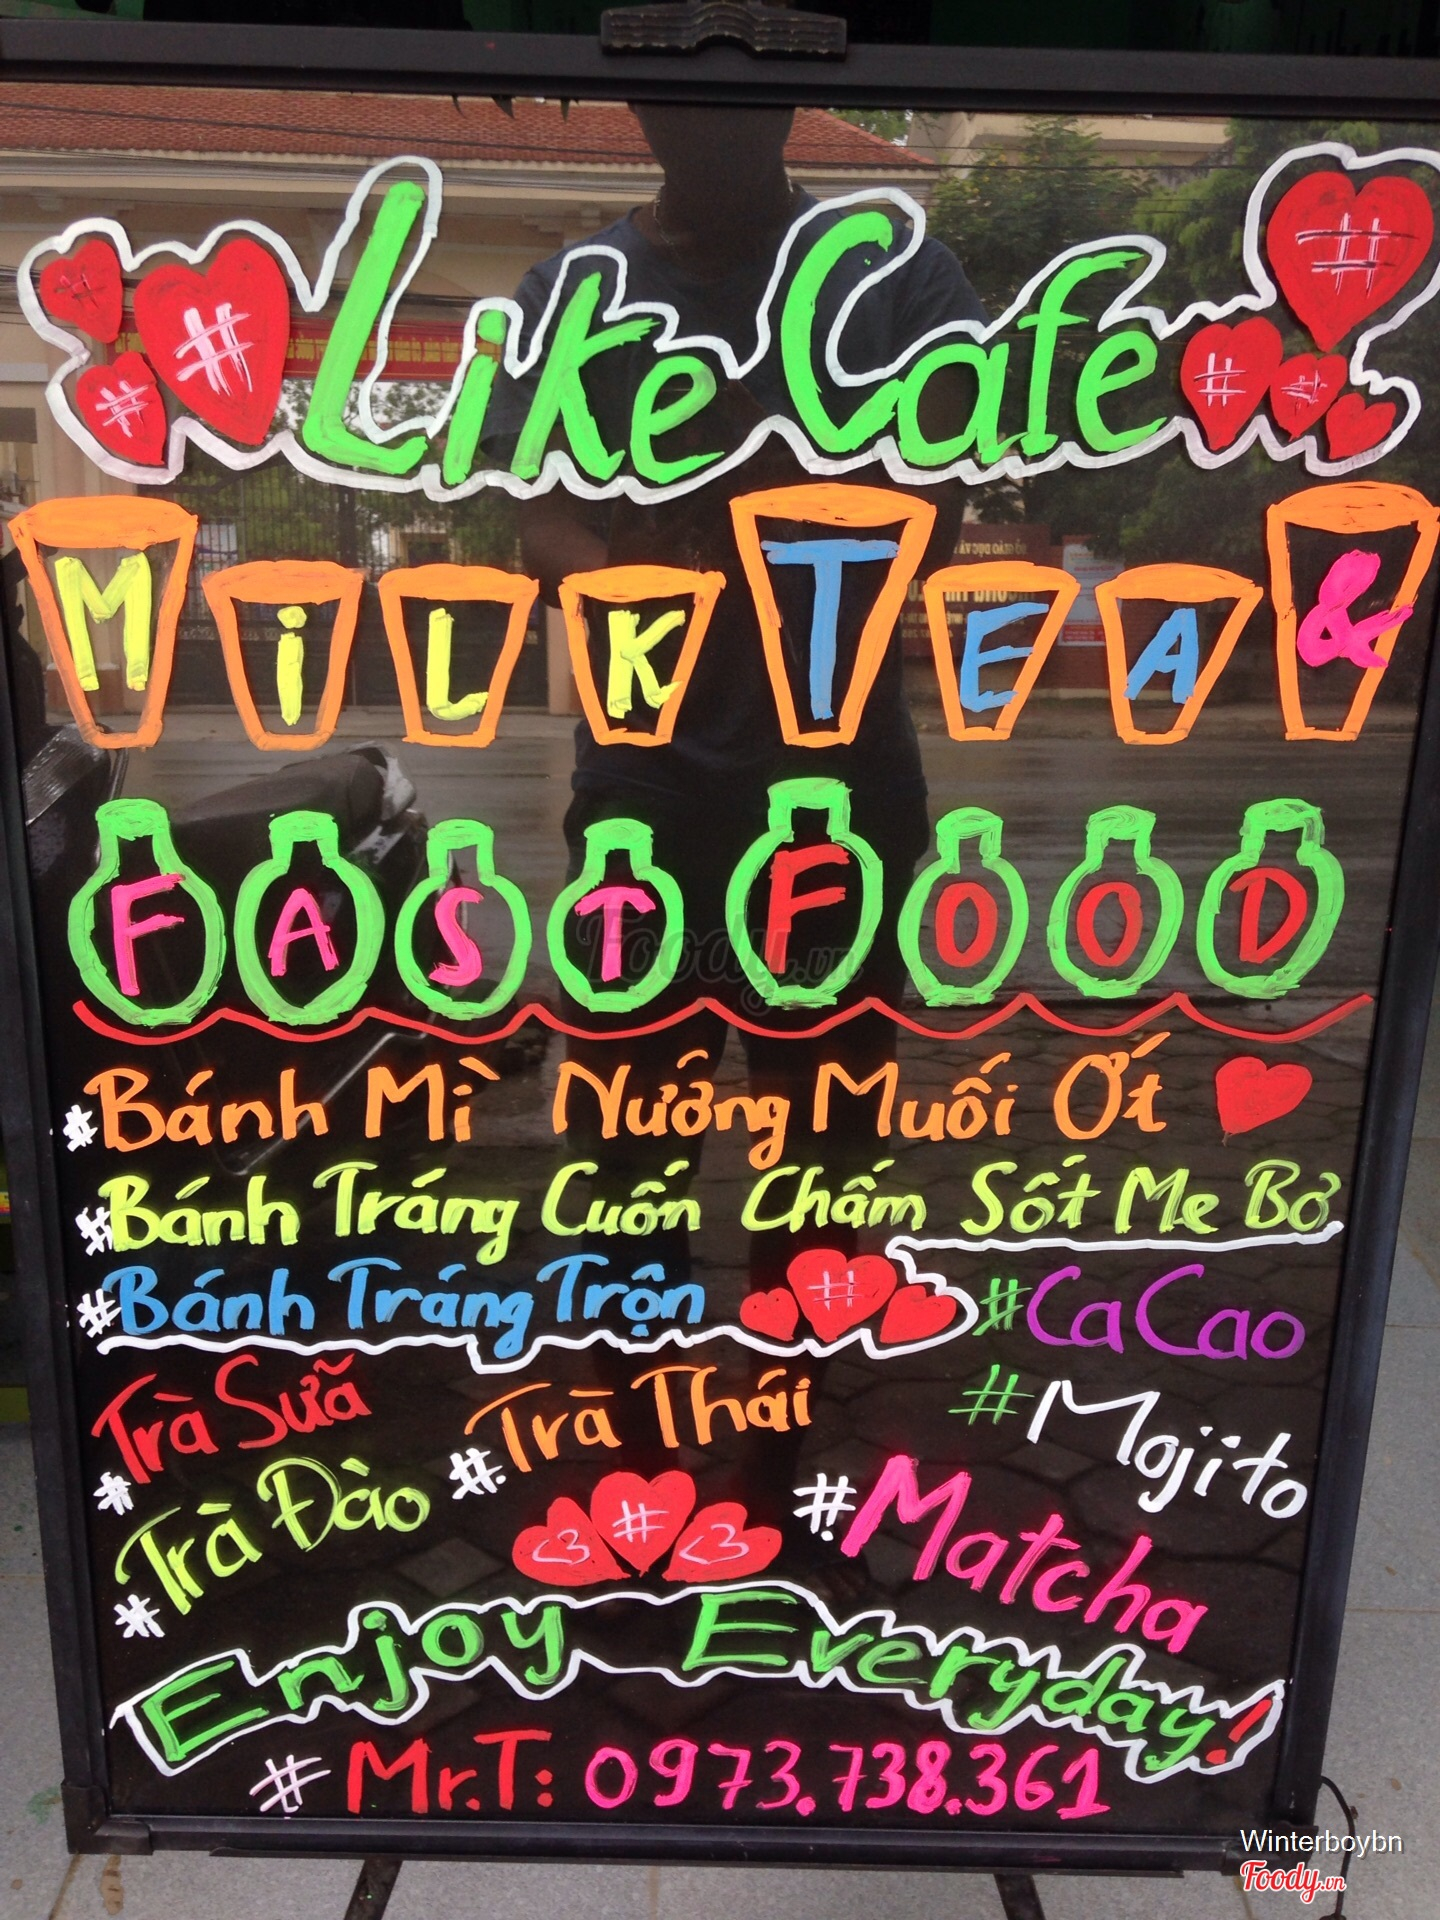 # Like Cafe #
MiLK TEA &
FAST FOOD
#Bánh Mì Nướng Muối Ớt
#Bánh Tráng Cuốn Chấm Sốt Me Bơ
#Bánh Tráng Trộn #
#CaCao
#Trà Sữa
#Trà Thái
#Mojito
#Trà Đào
<3 # <3
#Matcha
Enjoy Everyday!
#Mr.T: 0973.738.361
Foody.vn
Winterboybn
Foody.vn